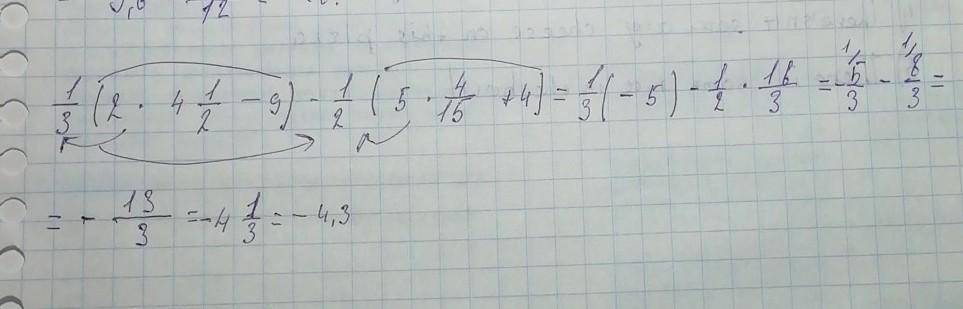 1/3 (2 · 4 1/2 - 9) - 1/2 (5 · 4/15 + 4) = 1/3 (-5) - 1/2 · 16/3 = -5/3 - 8/3 =
= - 13/3 = -4 1/3 = -4,3